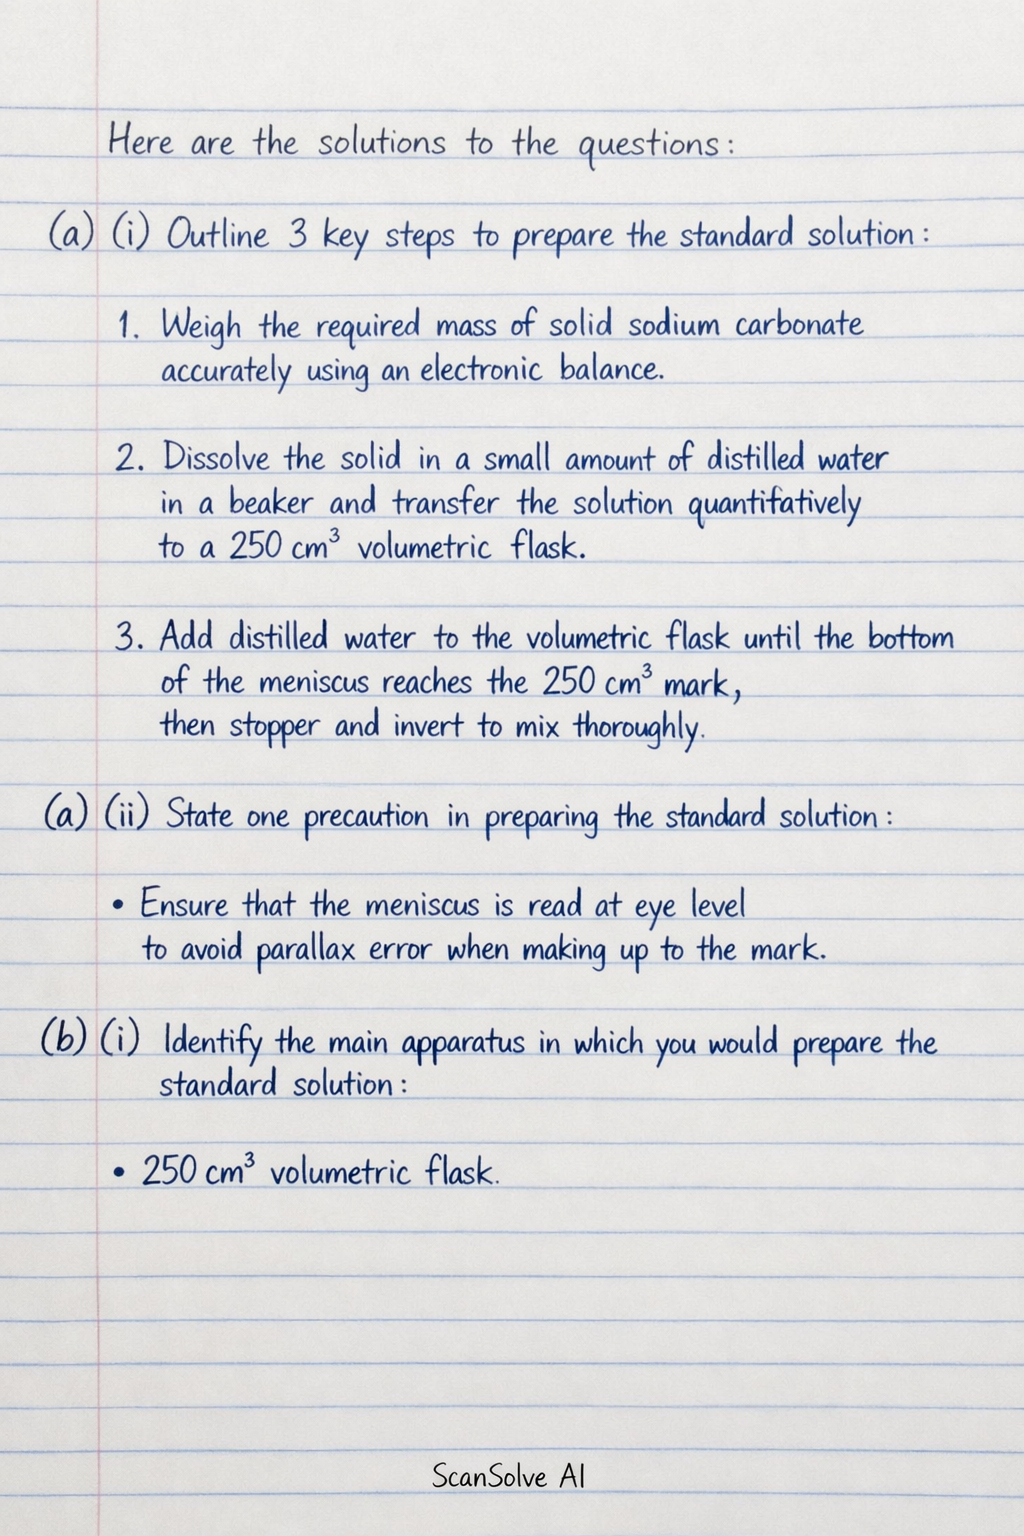 Here are the solutions to the questions:
(a) (i) Outline 3 key steps to prepare the standard solution:
1. Weigh the required mass of solid sodium carbonate
accurately using an electronic balance.
2. Dissolve the solid in a small amount of distilled water
in a beaker and transfer the solution quantifatively
to a 250 cm³ volumetric flask.
3. Add distilled water to the volumetric flask until the bottom
of the meniscus reaches the 250 cm³ mark,
then stopper and invert to mix thoroughly.
(a) (ii) State one precaution in preparing the standard solution:
• Ensure that the meniscus is read at eye level
to avoid parallax error when making up to the mark.
(b) (i) Identify the main apparatus in which you would prepare the
standard solution:
• 250 cm³ volumetric flask.
ScanSolve AI